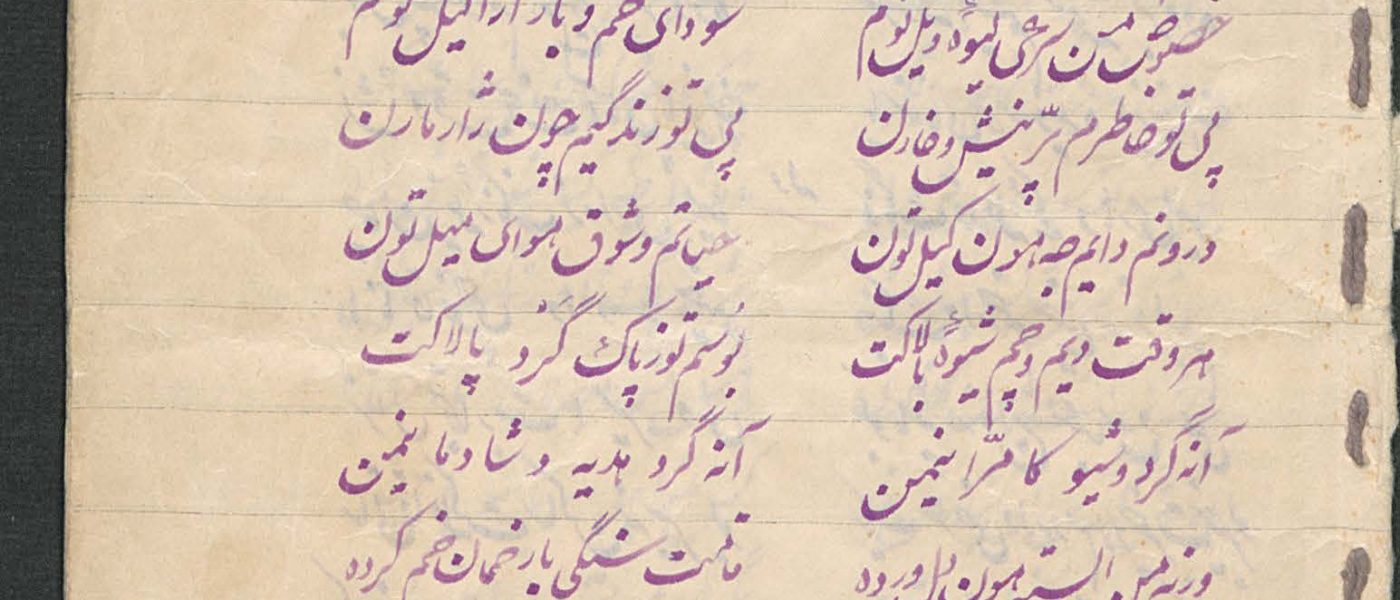 خصوص من سرحی لیوهٔ ویل توم سودای خم و بار ارا لیل توم
پی تو خاطرم پرّ نیش و خارن پی تو زندگیم چون ژار مارن
درونم دایم جه هون کیل تون حیاتم و شوق هوای میل تون
هر وقت دیم و چم شیوهٔ بالاکت بوسم تو ز پاک گرد پالاکت
آنه گرد و شیو کامرّانیمن آنه گرد هدیه و شادمانیمن
ورنه من الست هون دل ورده قامت سنگی بار خمان خم کرده